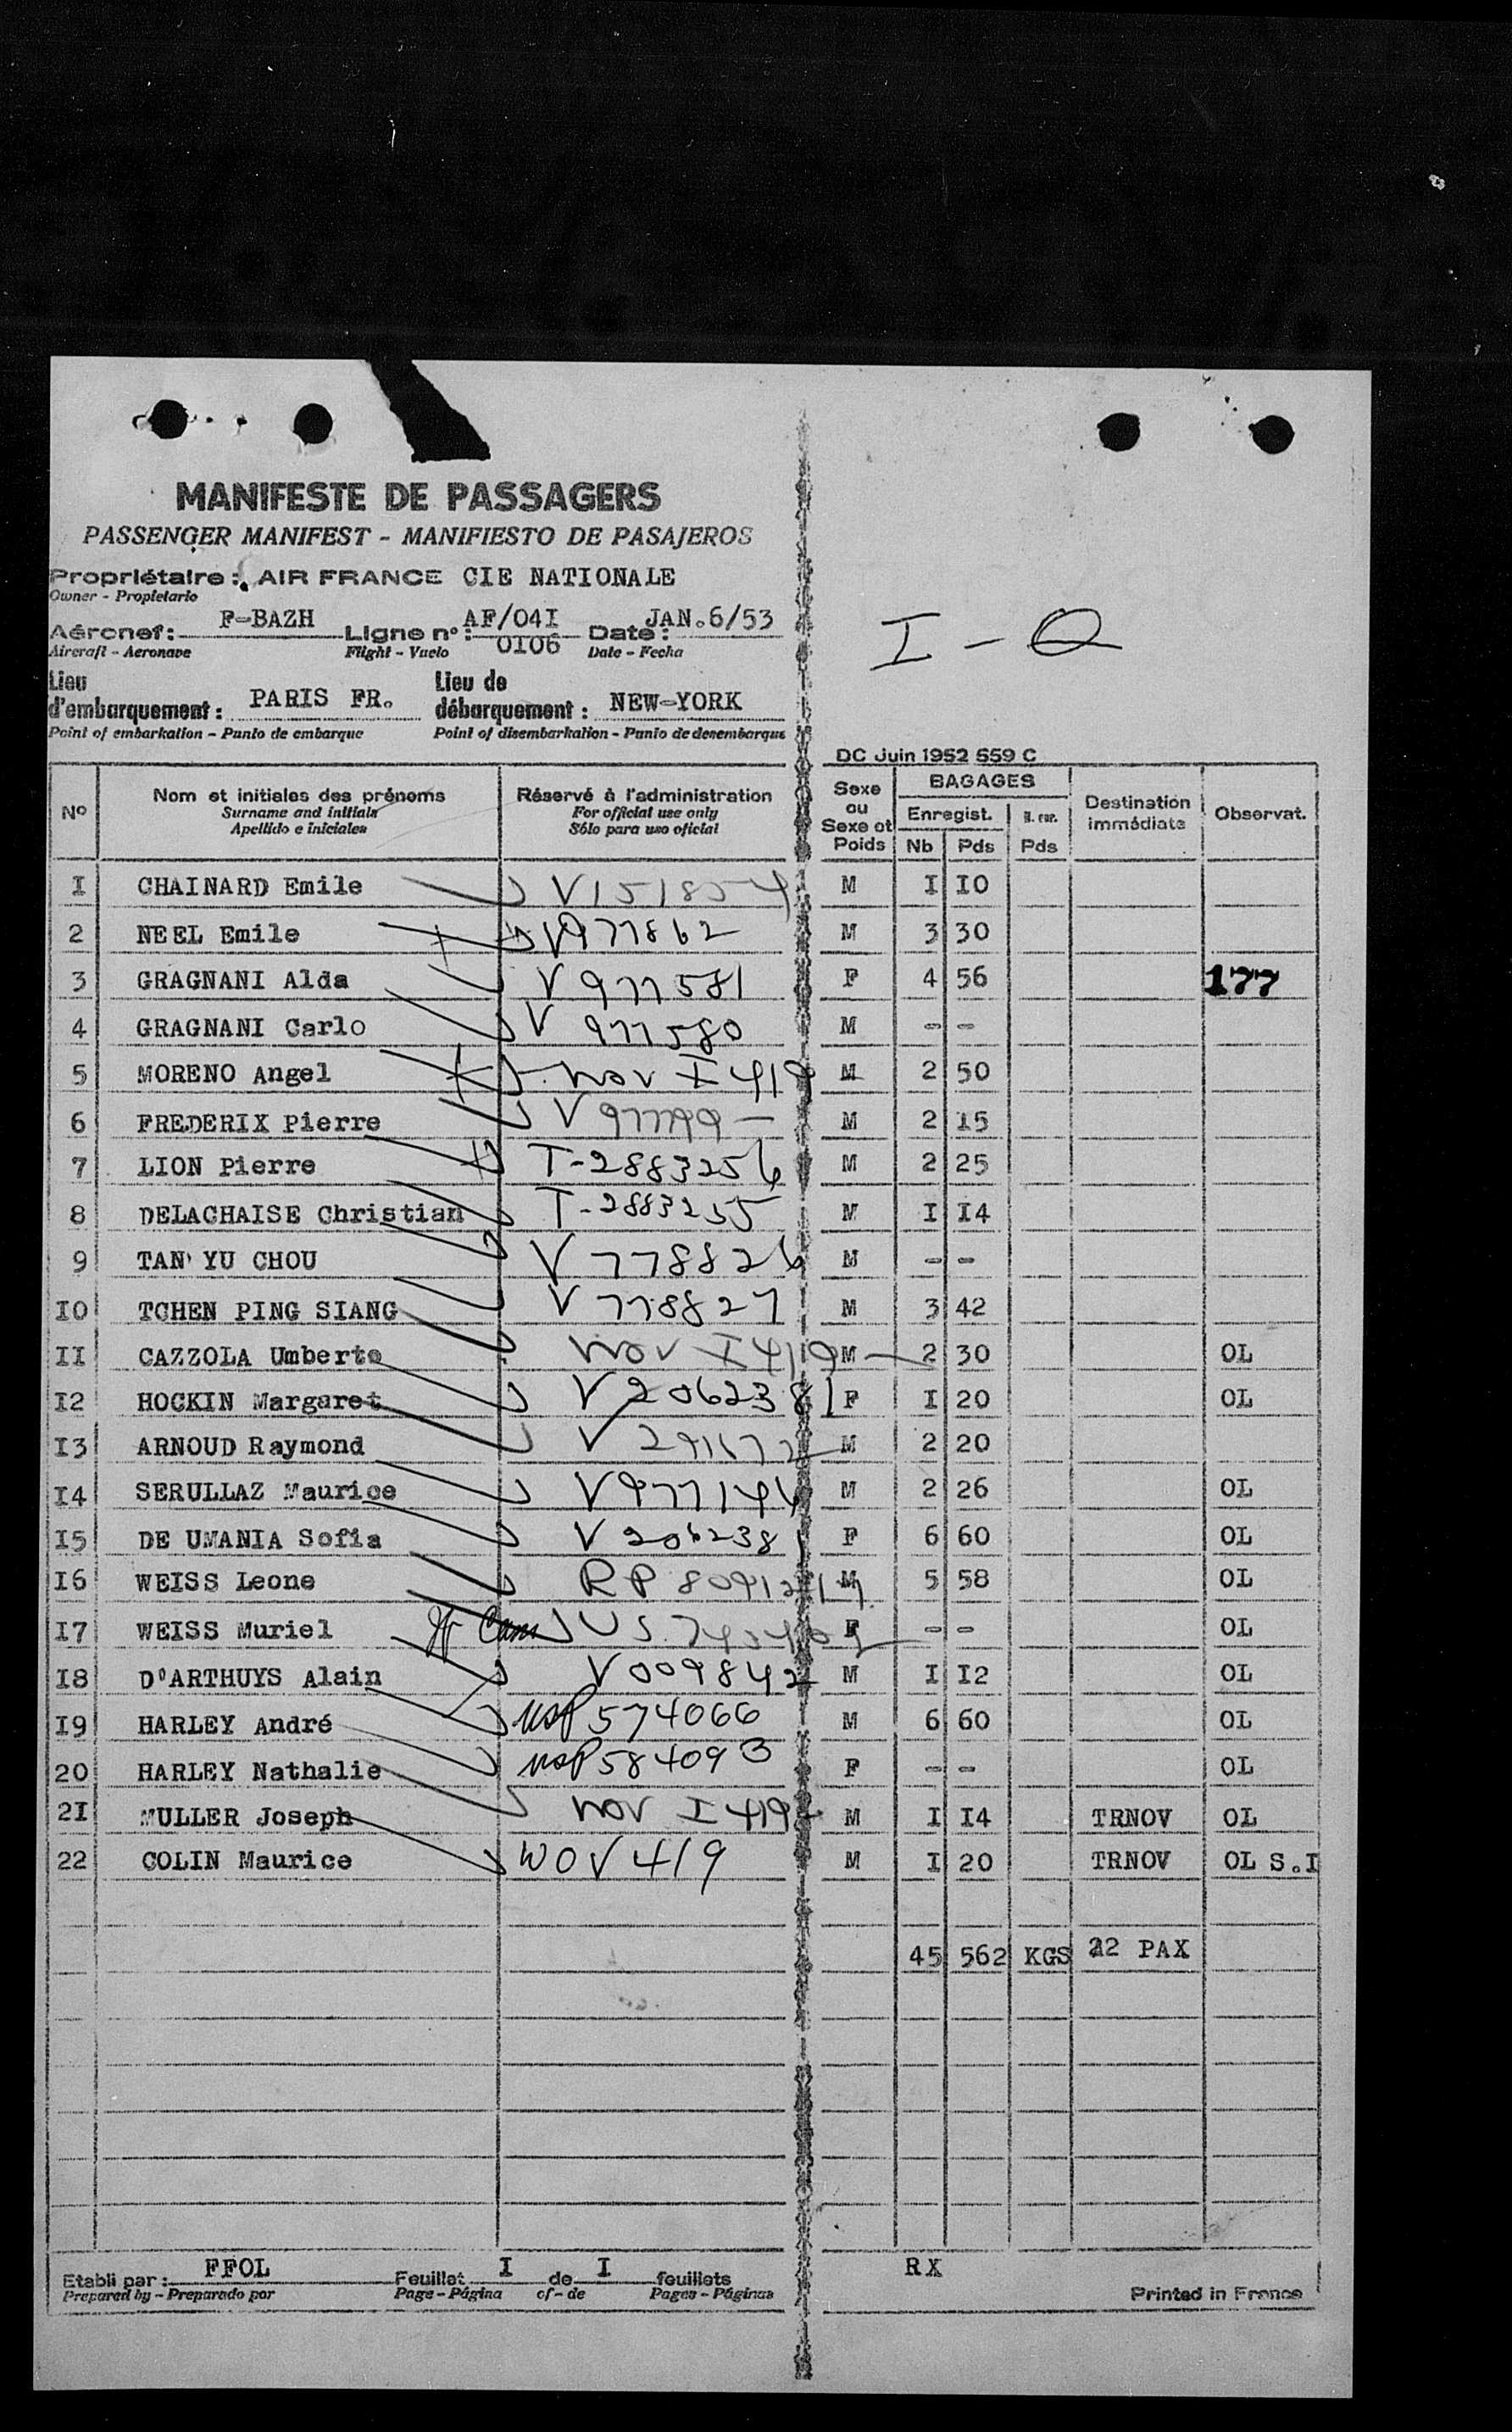 MANIFESTE DE PASSAGERS
PASSENGER MANIFEST - MANIFIESTO DE PASAJEROS
Propriétaire : AIR FRANCE CIE NATIONALE
Owner - Propietario
Aéronef : F-BAZH Ligne n° : AF/04I 0I06 Date : JAN.6/53
Aircraft - Aeronave Flight - Vuelo Date - Fecha
I - Q
Lieu d'embarquement : PARIS FR. Lieu de débarquement : NEW-YORK
Point of embarkation - Punto de embarque Point of disembarkation - Punto de desembarque
DC Juin 1952 559 C
N° Nom et initiales des prénoms Réservé à l'administration Sexe ou Sexe et Poids BAGAGES Destination immédiate Observat.
Surname and initials For official use only Enregist.
Apellido e iniciales Sólo para uso oficial Nb Pds Pds
I CHAINARD Emile V151854 M I I0
2 NEEL Emile V977862 M 3 30
3 GRAGNANI Alda V 977581 F 4 56 177
4 GRAGNANI Carlo V 977580 M - -
5 MORENO Angel nov I 419 M 2 50
6 FREDERIX Pierre M 2 15
7 LION Pierre T-2883256 M 2 25
8 DELACHAISE Christian T-2883255 M I I4
9 TAN YU CHOU V 778826 M - -
I0 TCHEN PING SIANG V 778827 M 3 42
II CAZZOLA Umberto nov I 419 M 2 30 OL
I2 HOCKIN Margaret V 2062381 F I 20 OL
I3 ARNOUD Raymond M 2 20
I4 SERULLAZ Maurice V977146 M 2 26 OL
I5 DE UMANIA Sofia V 2062381 F 6 60 OL
I6 WEISS Leone M 5 58 OL
I7 WEISS Muriel F - - OL
I8 D'ARTHUYS Alain V009842 M I I2 OL
I9 HARLEY André USP 574066 M 6 60 OL
20 HARLEY Nathalie USP 584093 F - - OL
2I MULLER Joseph nov I 419 M I I4 TRNOV OL
22 COLIN Maurice WOV 419 M I 20 TRNOV OL S.I
45 562 KGS 22 PAX
Etabli par : FFOL Feuillet I de I feuillets RX
Prepared by - Preparado por Page - Página of - de Pages - Páginas Printed in France